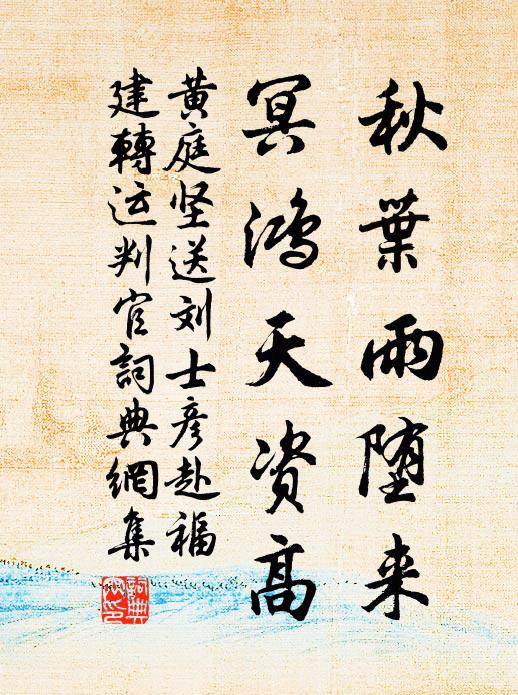 秋葉雨堕来
冥鸿天资高
黄庭坚送刘士彦赴福
建轉运判官詞典網集